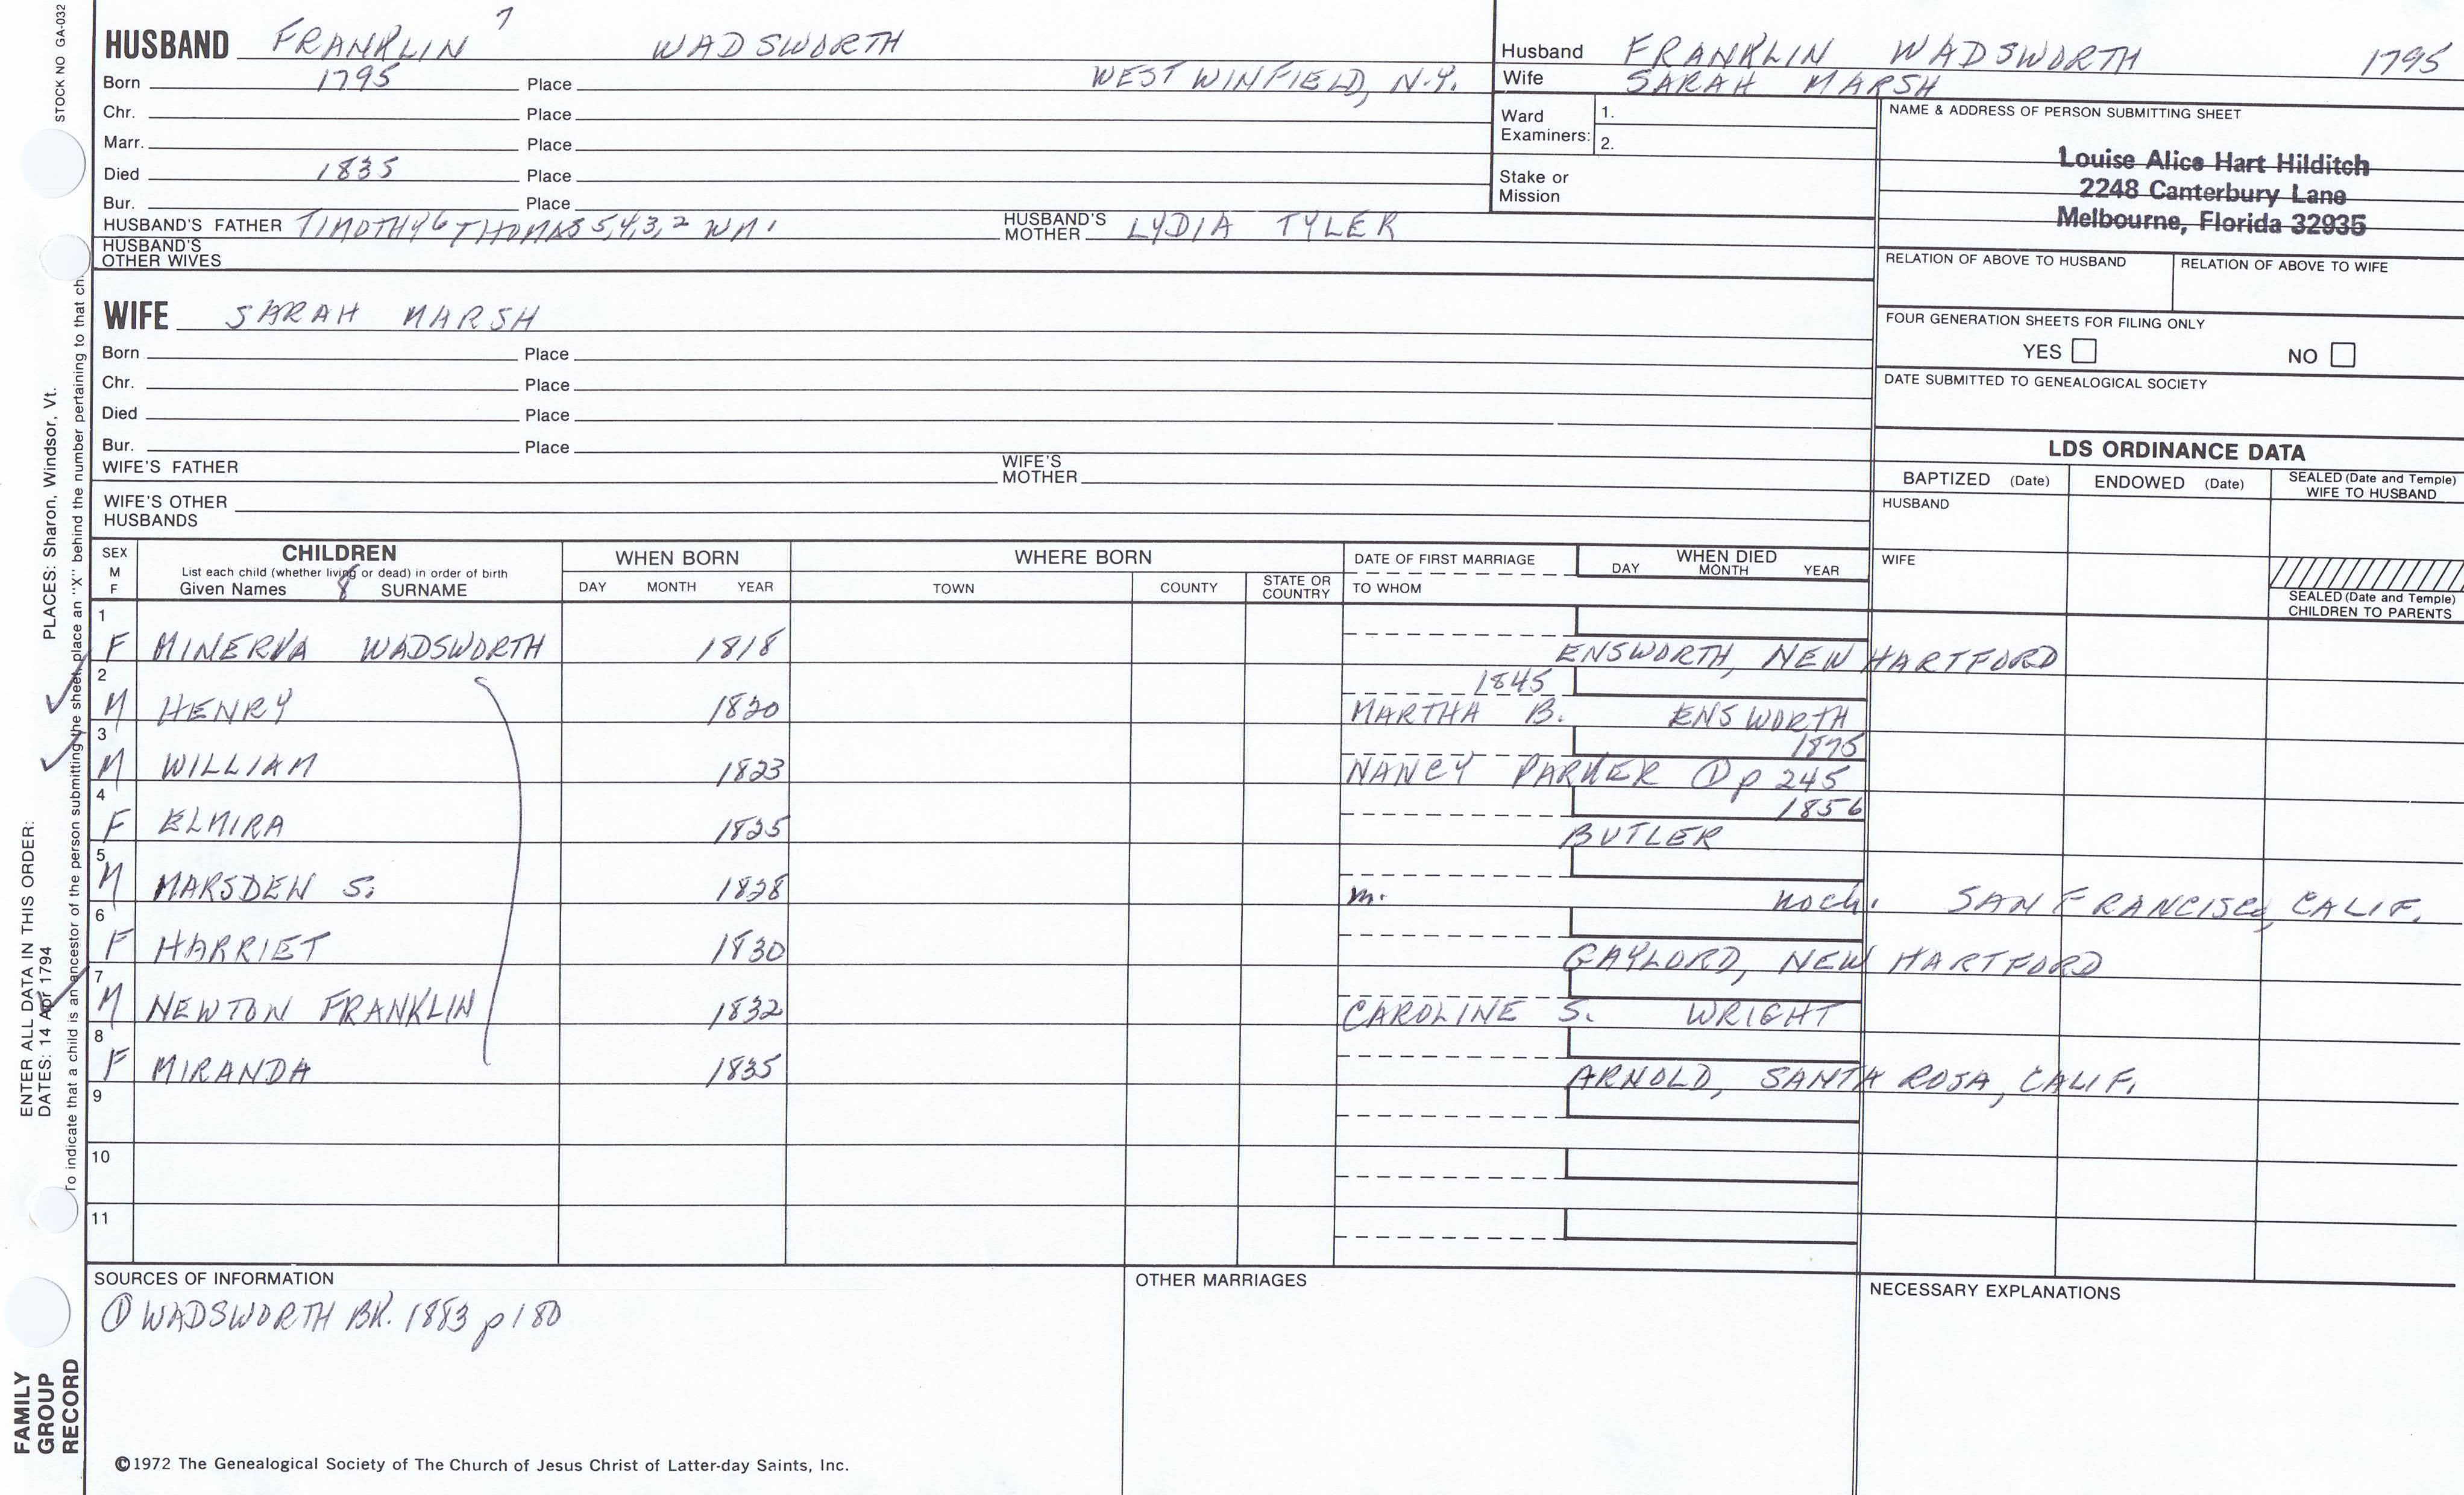 STOCK NO GA-032
HUSBAND FRANKLIN 7 WADSWORTH
Born 1795 Place WEST WINFIELD, N.Y.
Chr. Place
Marr. Place
Died 1835 Place
Bur. Place
HUSBAND'S FATHER TIMOTHY 6 THOMAS 5,4,3,2 WM. HUSBAND'S MOTHER LYDIA TYLER
HUSBAND'S OTHER WIVES
WIFE SARAH MARSH
Born Place
Chr. Place
Died Place
Bur. Place
WIFE'S FATHER WIFE'S MOTHER
WIFE'S OTHER HUSBANDS
Husband FRANKLIN WADSWORTH 1795
Wife SARAH MARSH
Ward Examiners: 1.
2.
Stake or Mission
NAME & ADDRESS OF PERSON SUBMITTING SHEET
Louise Alice Hart Hilditch
2248 Canterbury Lane
Melbourne, Florida 32935
RELATION OF ABOVE TO HUSBAND RELATION OF ABOVE TO WIFE
FOUR GENERATION SHEETS FOR FILING ONLY
YES NO
DATE SUBMITTED TO GENEALOGICAL SOCIETY
LDS ORDINANCE DATA
BAPTIZED (Date) ENDOWED (Date) SEALED (Date and Temple) WIFE TO HUSBAND
HUSBAND
WIFE
SEALED (Date and Temple) CHILDREN TO PARENTS
SEX M F
CHILDREN
List each child (whether living or dead) in order of birth
Given Names 8 SURNAME
WHEN BORN
DAY MONTH YEAR
WHERE BORN
TOWN COUNTY STATE OR COUNTRY
DATE OF FIRST MARRIAGE
TO WHOM
WHEN DIED
DAY MONTH YEAR
1
F MINERVA WADSWORTH 1818 ENSWORTH, NEW HARTFORD
2 1845
M HENRY 1820 MARTHA B. ENSWORTH
3 1875
M WILLIAM 1823 NANCY PARKER ① p 245
4 1856
F ELMIRA 1825 BUTLER
5
M MARSDEN S. 1828 m. noch. SAN FRANCISCO, CALIF.
6
F HARRIET 1830 GAYLORD, NEW HARTFORD
7
M NEWTON FRANKLIN 1832 CAROLINE S. WRIGHT
8
F MIRANDA 1835 ARNOLD, SANTA ROSA, CALIF.
9
10
11
SOURCES OF INFORMATION
① WADSWORTH BK. 1883 p 180
OTHER MARRIAGES
NECESSARY EXPLANATIONS
©1972 The Genealogical Society of The Church of Jesus Christ of Latter-day Saints, Inc.
FAMILY GROUP RECORD
ENTER ALL DATA IN THIS ORDER:
DATES: 14 Apr 1794 PLACES: Sharon, Windsor, Vt.
To indicate that a child is an ancestor of the person submitting the sheet, place an "X" behind the number pertaining to that ch